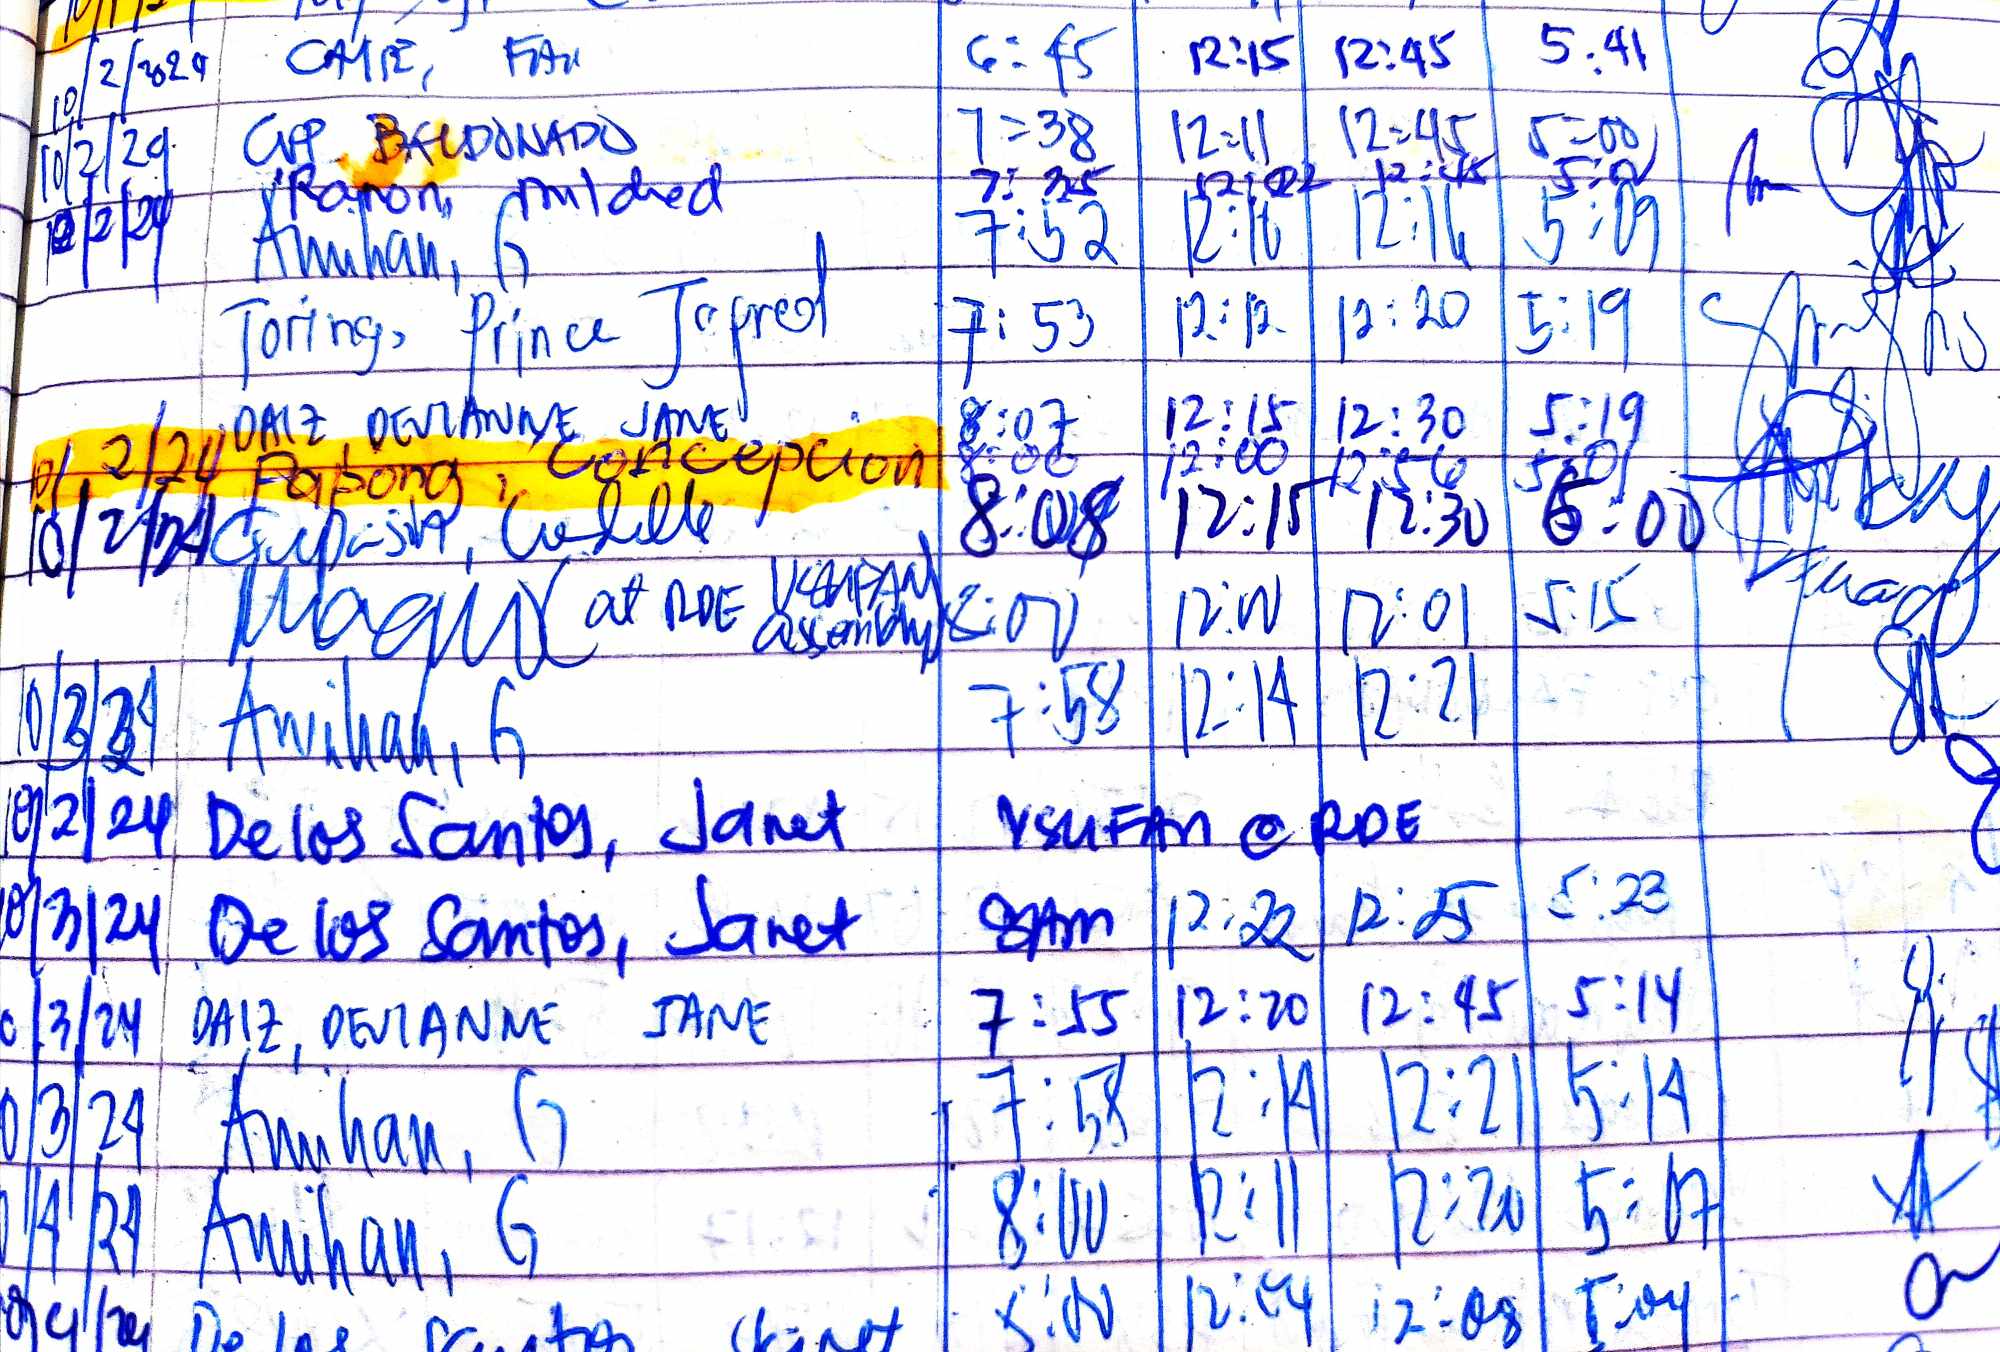 10/2/2024 CAIPE, FAN 6:45 12:15 12:45 5:41
10/2/24 BALDONADO 7:38 12:11 12:45 5:00
Ramon, Mildred 7:25 12:02 12:45 5:01
10/2/24 Amihan, G 7:52 12:10 12:16 5:09
Toring, Prince Japred 7:53 12:12 12:20 5:19
DAIZ DEVIANNE JANE 8:07 12:15 12:30 5:19
10/2/24 Pabong, Concepcion 8:00 12:00 12:56 5:01
10/2/24 8:08 12:15 12:30 6:00
(at RDE VSUFAN assembly) 12:01 5:15
10/3/24 Amihan, G 7:58 12:14 12:21
10/2/24 De los Santos, Janet VSUFAN @ RDE
10/3/24 De los Santos, Janet 8AM 12:22 12:25 5:23
0/3/24 DAIZ, DEVIANNE JANE 7:55 12:20 12:45 5:14
0/3/24 Amihan, G 7:58 12:14 12:21 5:14
/4/24 Amihan, G 8:00 12:11 12:20 5:07
/4/24 De los Santos 8:00 12:04 12:08 5:04